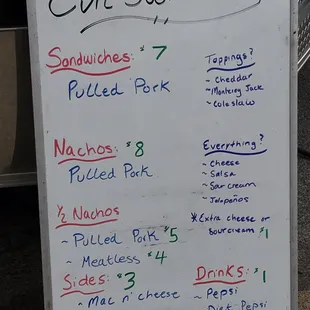 Sandwiches: $7
Pulled Pork
Toppings?
~ Cheddar
~ Monterey Jack
~ Coleslaw
Nachos: $8
Pulled Pork
Everything?
~ Cheese
~ Salsa
~ Sour cream
~ Jalapeños
*Extra cheese or
sour cream $1
1/2 Nachos
~ Pulled Pork $5
~ Meatless $4
Sides: $3
~ Mac n' cheese
Drinks: $1
~ Pepsi
Diet Pepsi